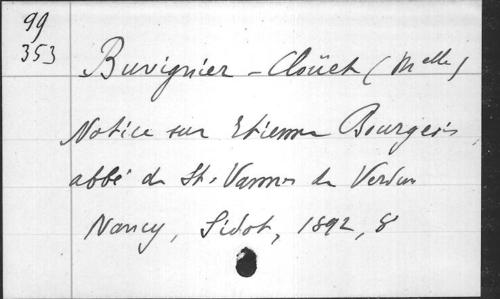 99
353
Buvignier-Cloüet (Melle)
Notice sur Etienne Bourgeois,
abbé de St-Vannes de Verdun
Nancy, Sidot, 1892, 8°